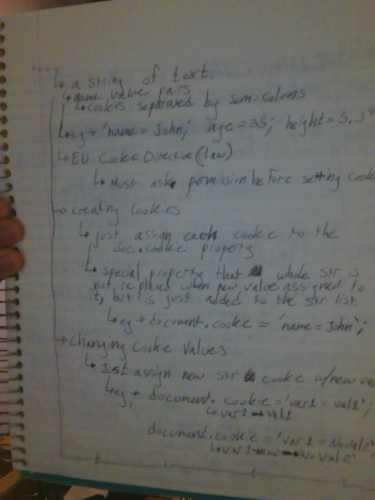 ↳ a string of text.
↳ name value pairs
↳ cookies separated by semicolons
↳ eg → 'name = John; age = 35; height = 5.
↳ EU Cookie Directive (law)
↳ Must ask permission before setting cookie
↳ creating cookies
↳ just assign each cookie to the
doc.cookie property
↳ special property that whole str is
not replaced when new value assigned to
it, but is just added to the str list
↳ eg → document.cookie = 'name = John';
↳ Changing Cookie Values
↳ Just assign new str cookie w/new
↳ eg → document.cookie = 'var1 = val1';
↳ var1 → val1
document.cookie = 'var1 = Noval2'
↳ var1 → Noval2